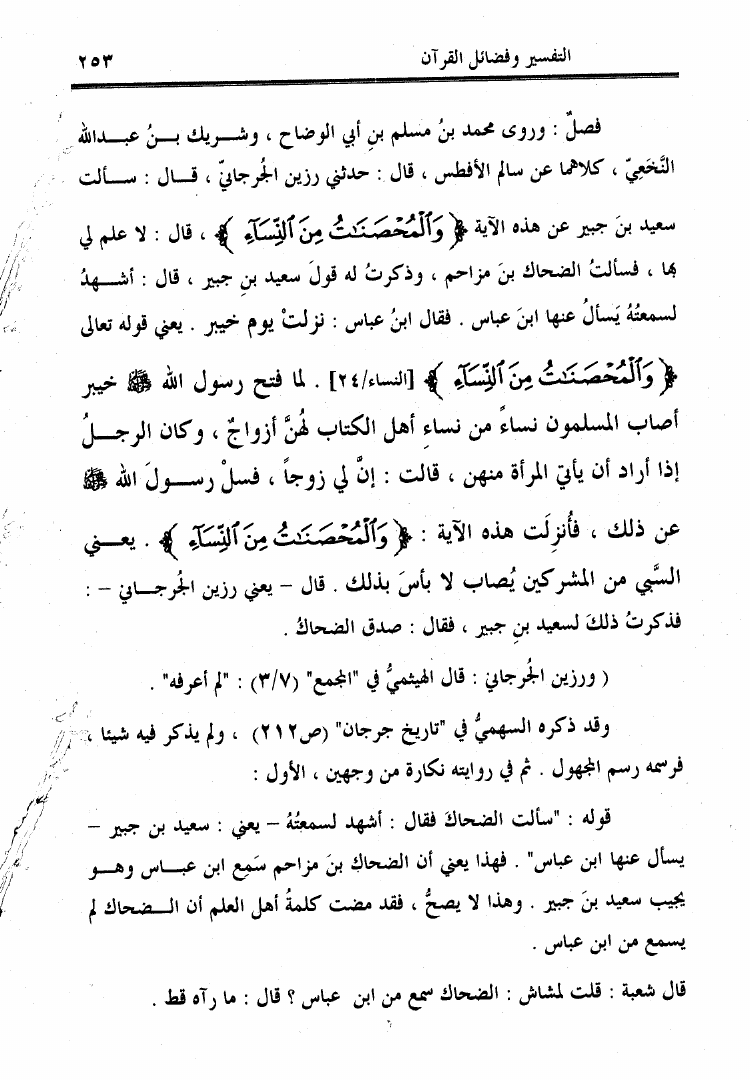 التفسير وفضائل القرآن ٢٥٣
فصلٌ : وروى محمد بنُ مسلم بنِ أبي الوضاح ، وشريك بنُ عبدالله
النَّخَعِيّ ، كلاهما عن سالم الأفطس ، قال : حدثني رزين الجُرجانيّ ، قال : سألت
سعيد بنَ جبير عن هذه الآية ﴿ وَٱلْمُحْصَنَـٰتُ مِنَ ٱلنِّسَآءِ ﴾ ، قال : لا علم لي
بها ، فسألتُ الضحاك بنَ مزاحم ، وذكرتُ له قولَ سعيد بنِ جبير ، قال : أشهدُ
لسمعتُهُ يَسألُ عنها ابنَ عباس . فقال ابنُ عباس : نزلتْ يوم خيبر . يعني قوله تعالى
﴿ وَٱلْمُحْصَنَـٰتُ مِنَ ٱلنِّسَآءِ ﴾ [النساء/٢٤] . لما فتح رسول الله ﷺ خيبر
أصاب المسلمون نساءً من نساءِ أهل الكتاب لهُنَّ أزواجٌ ، وكان الرجلُ
إذا أراد أن يأتيَ المرأة منهن ، قالت : إنَّ لي زوجاً ، فسلْ رسولَ الله ﷺ
عن ذلك ، فأُنزِلَت هذه الآية : ﴿ وَٱلْمُحْصَنَـٰتُ مِنَ ٱلنِّسَآءِ ﴾ . يعني
السَّبي من المشركين يُصاب لا بأسَ بذلك . قال – يعني رزين الجُرجاني – :
فذكرتُ ذلكَ لسعيد بنِ جبير ، فقال : صدق الضحاكُ .
( ورزين الجُرجاني : قال الهيثميُّ في "المجمع" (٣/٧) : "لم أعرفه" .
وقد ذكره السهميُّ في "تاريخ جرجان" (ص٢١٢) ، ولم يذكر فيه شيئا ،
فرسمه رسم المجهول . ثم في روايته نكارة من وجهين ، الأول :
قوله : "سألت الضحاكَ فقال : أشهد لسمعتُهُ – يعني : سعيد بن جبير –
يسأل عنها ابن عباس" . فهذا يعني أن الضحاك بنَ مزاحم سَمِع ابن عباس وهو
يجيب سعيد بنَ جبير . وهذا لا يصحُّ ، فقد مضت كلمةُ أهل العلم أن الضحاك لم
يسمع من ابن عباس .
قال شعبة : قلت لمشاش : الضحاك سمع من ابن عباس ؟ قال : ما رآه قط .